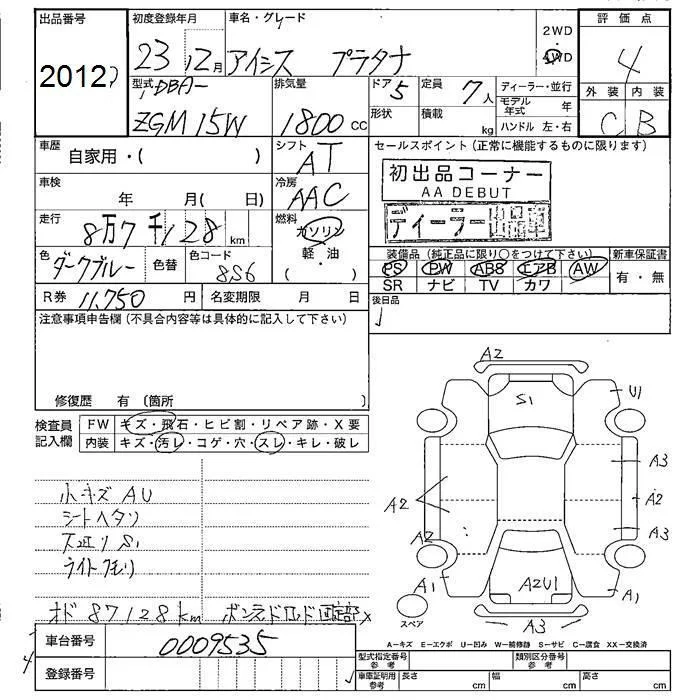 出品番号 初度登録年月 車名・グレード 2WD 4WD 評価点
2012 23年12月 アイシス プラタナ 4
型式 DBA- 排気量 ドア 5 定員 7人 ディーラー・並行 外装 内装
ZGM15W 1800cc 形状 積載 kg モデル年式 年 ハンドル 左・右 C B
車歴 自家用・( ) シフト AT セールスポイント (正常に機能するものに限ります)
初出品コーナー
AA DEBUT
車検 年 月( 日) 冷房 AAC
ディーラー出品車
走行 8万7千128km 燃料 ガソリン 軽・油 ( )
色 ダークブルー 色替 色コード 8S6
装備品 (純正品に限り○をつけて下さい) 新車保証書
PS PW ABS エアB AW 有・無
SR ナビ TV カワ
R券 11,750円 名変期限 月 日 後日品
注意事項申告欄 (不具合内容等は具体的に記入して下さい)
修復歴 有 〔箇所 〕
検査員記入欄 FW キズ・飛石・ヒビ割・リペア跡・X要
内装 キズ・汚レ・コゲ・穴・スレ・キレ・破レ
小キズ AU
シートヘタリ
天辺り S1
ライトクモリ
オド 87128km
車台番号 0009535
登録番号
A2
S1 U1
A3
A2 A2
A2 A3
A1 A2U1 A1
スペア A3
A－キズ E－エクボ U－凹み W－補修跡 S－サビ C－腐食 XX－交換済
型式指定番号 参考 類別区分番号 参考
車庫証明用 参考 長さ cm 幅 cm 高さ cm